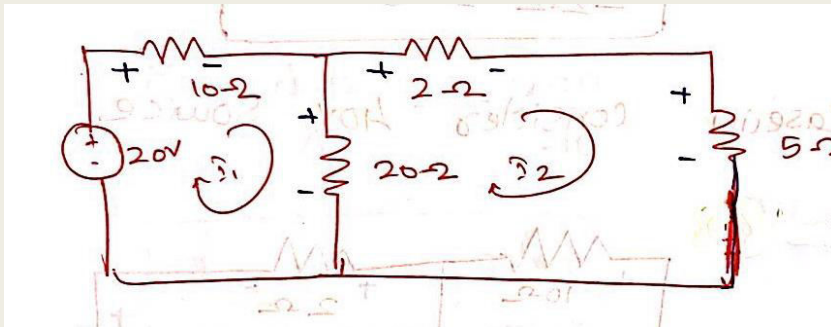 + - + -
10Ω 2Ω
+ +
+ - 20V I₁ - 20Ω I2 - 5Ω